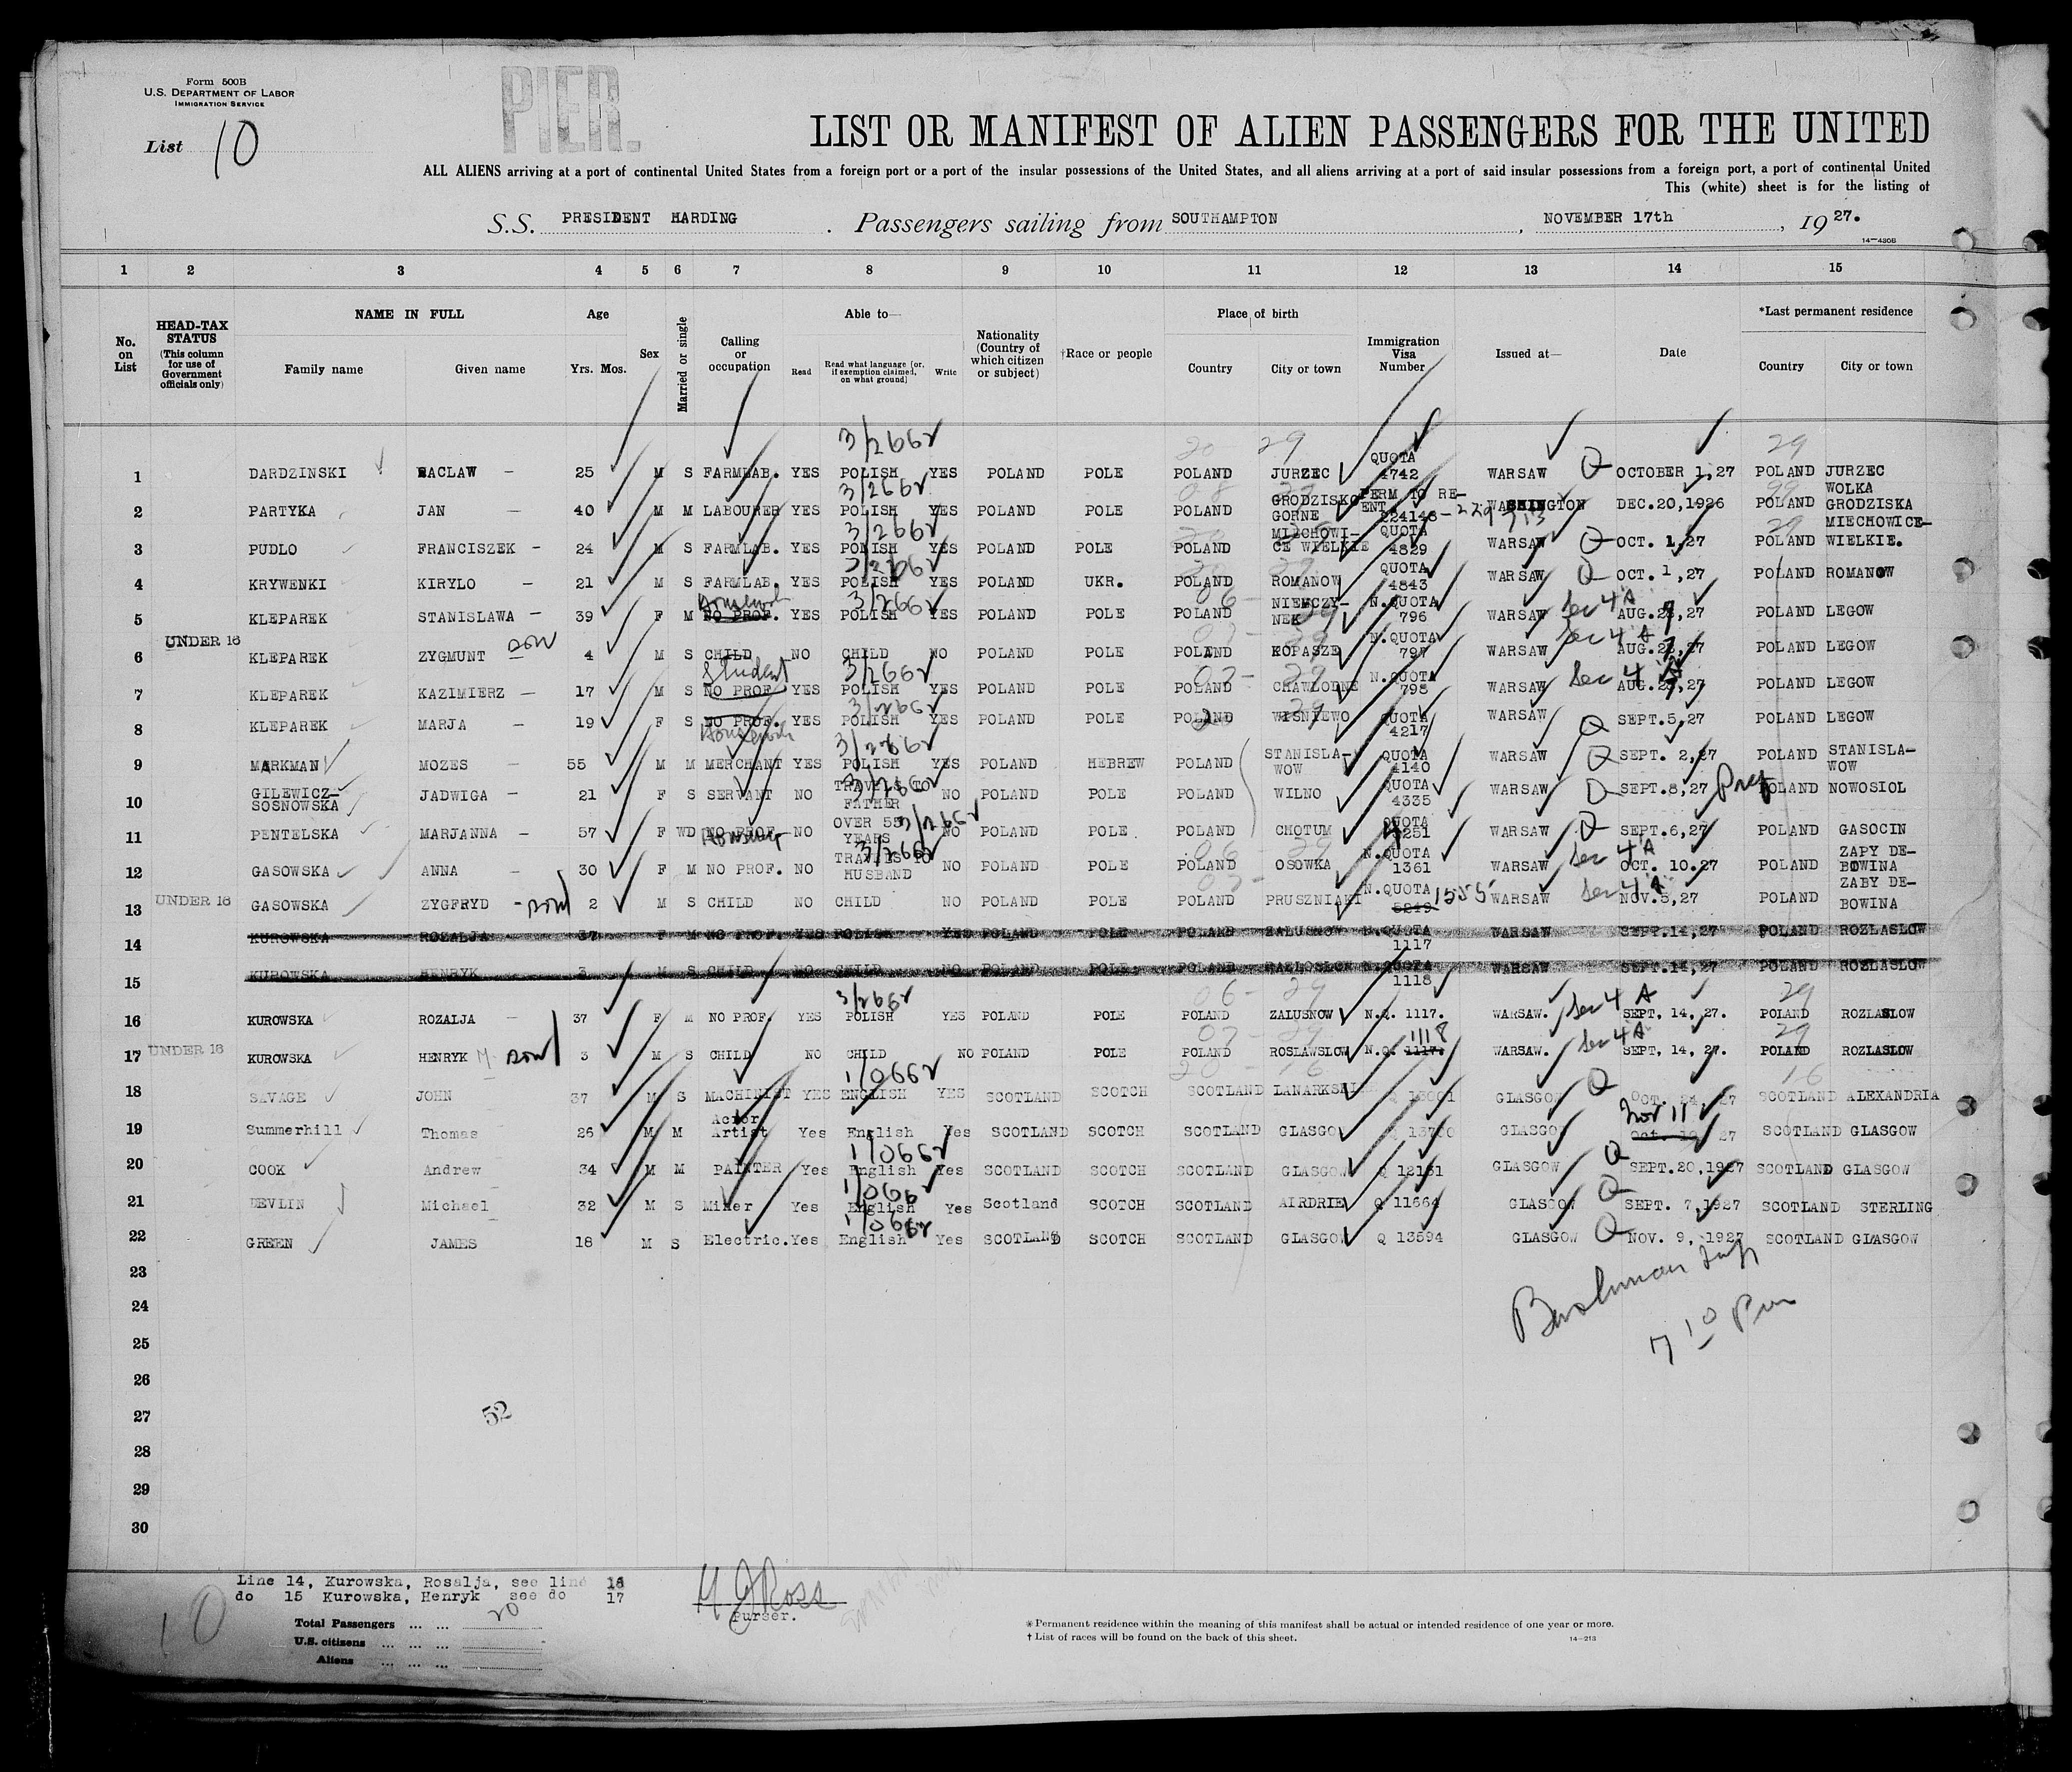 Form 500B
U.S. DEPARTMENT OF LABOR
IMMIGRATION SERVICE
PIER.
List 10
LIST OR MANIFEST OF ALIEN PASSENGERS FOR THE UNITED
ALL ALIENS arriving at a port of continental United States from a foreign port or a port of the insular possessions of the United States, and all aliens arriving at a port of said insular possessions from a foreign port, a port of continental United
This (white) sheet is for the listing of
S.S. PRESIDENT HARDING . Passengers sailing from SOUTHAMPTON , NOVEMBER 17th , 19 27.
14—430B
1 2 3 4 5 6 7 8 9 10 11 12 13 14 15
No. on List
HEAD-TAX STATUS (This column for use of Government officials only)
NAME IN FULL
Family name Given name
Age
Yrs. Mos.
Sex
Married or single
Calling or occupation
Able to—
Read Read what language [or, if exemption claimed, on what ground] Write
Nationality (Country of which citizen or subject)
†Race or people
Place of birth
Country City or town
Immigration Visa Number
Issued at—
Date
*Last permanent residence
Country City or town
3/2662 29 29
1 DARDZINSKI RACLAW – 25 M S FARMLAB. YES POLISH YES POLAND POLE POLAND JURZEC QUOTA 4742 WARSAW Q OCTOBER 1,27 POLAND JURZEC
3/2662
2 PARTYKA JAN – 40 M M LABOURER YES POLISH YES POLAND POLE POLAND GRODZISKO GORNE PERM TO RE-ENT 224148 WASHINGTON DEC.20,1926 POLAND WOLKA GRODZISKA
3/2662
3 PUDLO FRANCISZEK – 24 M S FARMLAB. YES POLISH YES POLAND POLE POLAND MIECHOWI-CE WIELKIE QUOTA 4829 WARSAW Q OCT. 1,27 POLAND MIECHOWICE-WIELKIE.
3/2662
4 KRYWENKI KIRYLO – 21 M S FARMLAB. YES POLISH YES POLAND UKR. POLAND ROMANOW QUOTA 4843 WARSAW Q OCT. 1,27 POLAND ROMANOW
Housewife 3/2662
5 KLEPAREK STANISLAWA – 39 F M NO PROF. YES POLISH YES POLAND POLE POLAND NIEMCZY-NEK N.QUOTA 796 WARSAW Sec 4 A AUG.23,27 POLAND LEGOW
6 UNDER 16 KLEPAREK ZYGMUNT son 4 M S CHILD NO CHILD NO POLAND POLE POLAND KOPASZE N.QUOTA 797 WARSAW Sec 4 A AUG.23,27 POLAND LEGOW
Student 3/2662
7 KLEPAREK KAZIMIERZ – 17 M S NO PROF. YES POLISH YES POLAND POLE POLAND CHAWLODNE N.QUOTA 798 WARSAW Sec 4 A AUG.23,27 POLAND LEGOW
3/2662
8 KLEPAREK MARJA – 19 F S NO PROF. YES POLISH YES POLAND POLE POLAND WISNIEWO QUOTA 4217 WARSAW Q SEPT.5,27 POLAND LEGOW
3/2662
9 MARKMAN MOZES – 55 M M MERCHANT YES POLISH YES POLAND HEBREW POLAND STANISLA-WOW QUOTA 4140 WARSAW Q SEPT. 2,27 POLAND STANISLA-WOW
3/2662
10 GILEWICZ-SOSNOWSKA JADWIGA – 21 F S SERVANT NO TRAVELS TO FATHER NO POLAND POLE POLAND WILNO QUOTA 4335 WARSAW SEPT.8,27 Pref POLAND NOWOSIOL
3/2662
11 PENTELSKA MARJANNA – 57 F WD NO PROF. NO OVER 55 YEARS NO POLAND POLE POLAND CHOTUM QUOTA 4251 WARSAW Q SEPT.6,27 POLAND GASOCIN
3/2662
12 GASOWSKA ANNA – 30 F M NO PROF. NO TRAVELS TO HUSBAND NO POLAND POLE POLAND OSOWKA N.QUOTA 1361 WARSAW Sec 4 A OCT. 10.27 POLAND ZAPY DE-BOWINA
13 UNDER 16 GASOWSKA ZYGFRYD – son 2 M S CHILD NO CHILD NO POLAND POLE POLAND PRUSZNIAKI N.QUOTA 5249 1555 WARSAW Sec 4 A NOV.5,27 POLAND ZABY DE-BOWINA
14 KUROWSKA ROZALJA 37 F M NO PROF. YES POLISH YES POLAND POLE POLAND ZALUSNOW N.QUOTA 1117 WARSAW SEPT.14,27 POLAND ROZLASLOW
15 KUROWSKA HENRYK 3 M S CHILD NO CHILD NO POLAND POLE POLAND N.QUOTA 1118 WARSAW SEPT.14,27 POLAND ROZLASLOW
3/2662 29
16 KUROWSKA ROZALJA – 37 F M NO PROF. YES POLISH YES POLAND POLE POLAND ZALUSNOW N.Q. 1117. WARSAW. Sec 4 A SEPT, 14, 27. POLAND ROZLASLOW
17 UNDER 16 KUROWSKA HENRYK son 3 M S CHILD NO CHILD NO POLAND POLE POLAND ROSLAWSLOW N.Q. 1117. 1118 WARSAW. Sec 4 A SEPT, 14, 27. POLAND ROZLASLOW
1/0662
18 SAVAGE JOHN 37 M S MACHINIST YES ENGLISH YES SCOTLAND SCOTCH SCOTLAND LANARKSHI GLASGOW Q OCT. 24, 27 SCOTLAND ALEXANDRIA
19 Summerhill Thomas 26 M M Actor Artist Yes English Yes SCOTLAND SCOTCH SCOTLAND GLASGOW Q 13700 GLASGOW Nov 11 27 SCOTLAND GLASGOW
1/0662
20 COOK Andrew 34 M M PAINTER Yes English Yes SCOTLAND SCOTCH SCOTLAND GLASGOW Q 12161 GLASGOW Q SEPT.20,1927 SCOTLAND GLASGOW
1/066
21 DEVLIN Michael 32 M S Miner Yes English Yes Scotland SCOTCH SCOTLAND AIRDRIE Q 11664 GLASGOW Q SEPT. 7,1927 SCOTLAND STERLING
1/0662
22 GREEN JAMES 18 M S Electric. Yes English Yes SCOTLAND SCOTCH SCOTLAND GLASGOW Q 13594 GLASGOW Q NOV. 9, 1927 SCOTLAND GLASGOW
23
24
25
26
27
28
29
30
52
Line 14, Kurowska, Rosalja, see line 16
do 15 Kurowska, Henryk see do 17
10
Total Passengers ... ... 20
U.S. citizens ... ... ...
Aliens ... ... ...
H J Ross
Purser.
* Permanent residence within the meaning of this manifest shall be actual or intended residence of one year or more.
† List of races will be found on the back of this sheet.
14—213